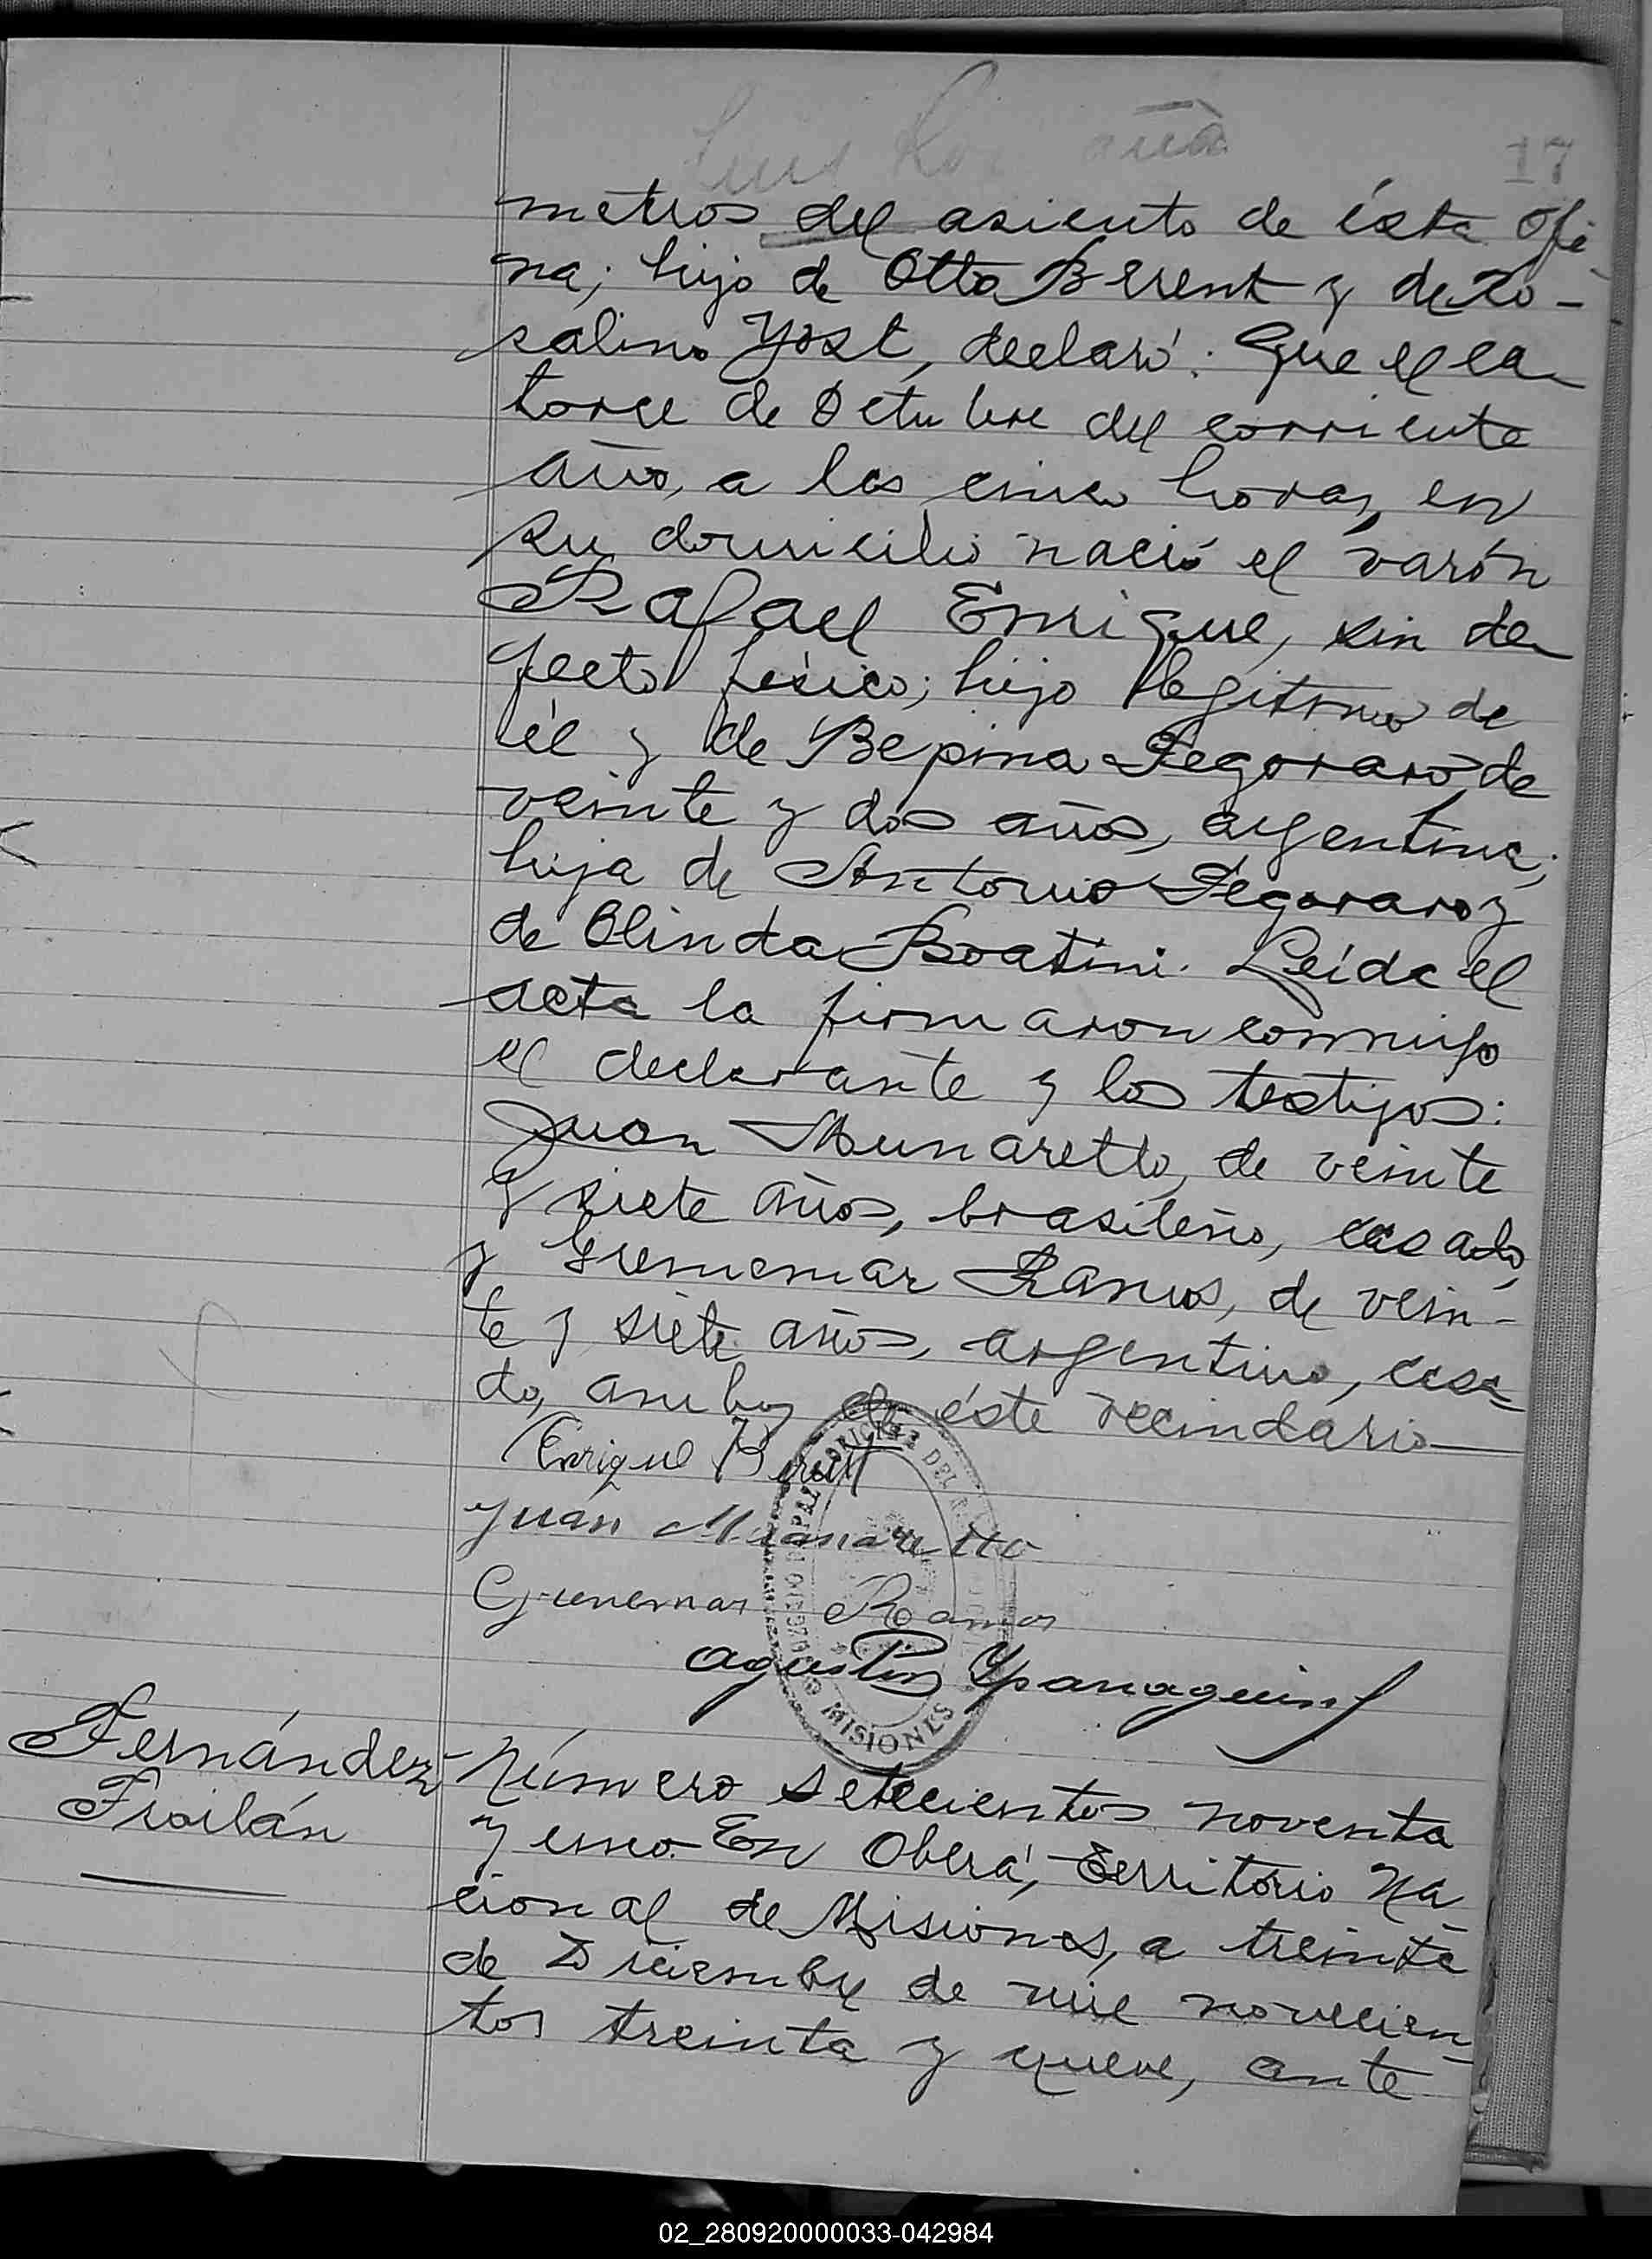 Luis
17
metros del asiento de ésta ofi-
na; hijo de Otto Berent y de Ro-
salina Yost, declaró: Que el ca-
torce de Octubre del corriente
año, a las cinco horas, en
su domicilio nació el varón
Rafael Enrique, sin de-
fecto físico; hijo legítimo de
él y de Bepina Pegoraro de
veinte y dos años, argentina;
hija de Antonio Pegoraro y
de Olinda Boatini. Leída el
acta la firmaron conmigo
el declarante y los testigos:
Juan Munaretto, de veinte
y siete años, brasileño, casado,
y Grunemar Ramos, de vein-
te y siete años, argentino, casa-
do, ambos de éste vecindario
Enrique Berent
Juan Munaretto
Grunemar Ramos
Agustin
MISIONES
Fernández
Froilán
Número setecientos noventa
y cinco. En Oberá, Territorio Na
cional de Misiones, a treinta
de Diciembre de mil novecien-
tos treinta y nueve, ante
02_280920000033-042984